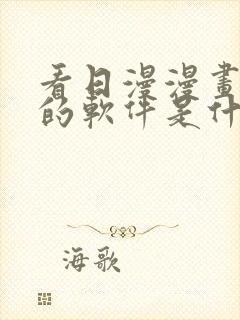 看日漫漫畫
的軟件是什
海歌